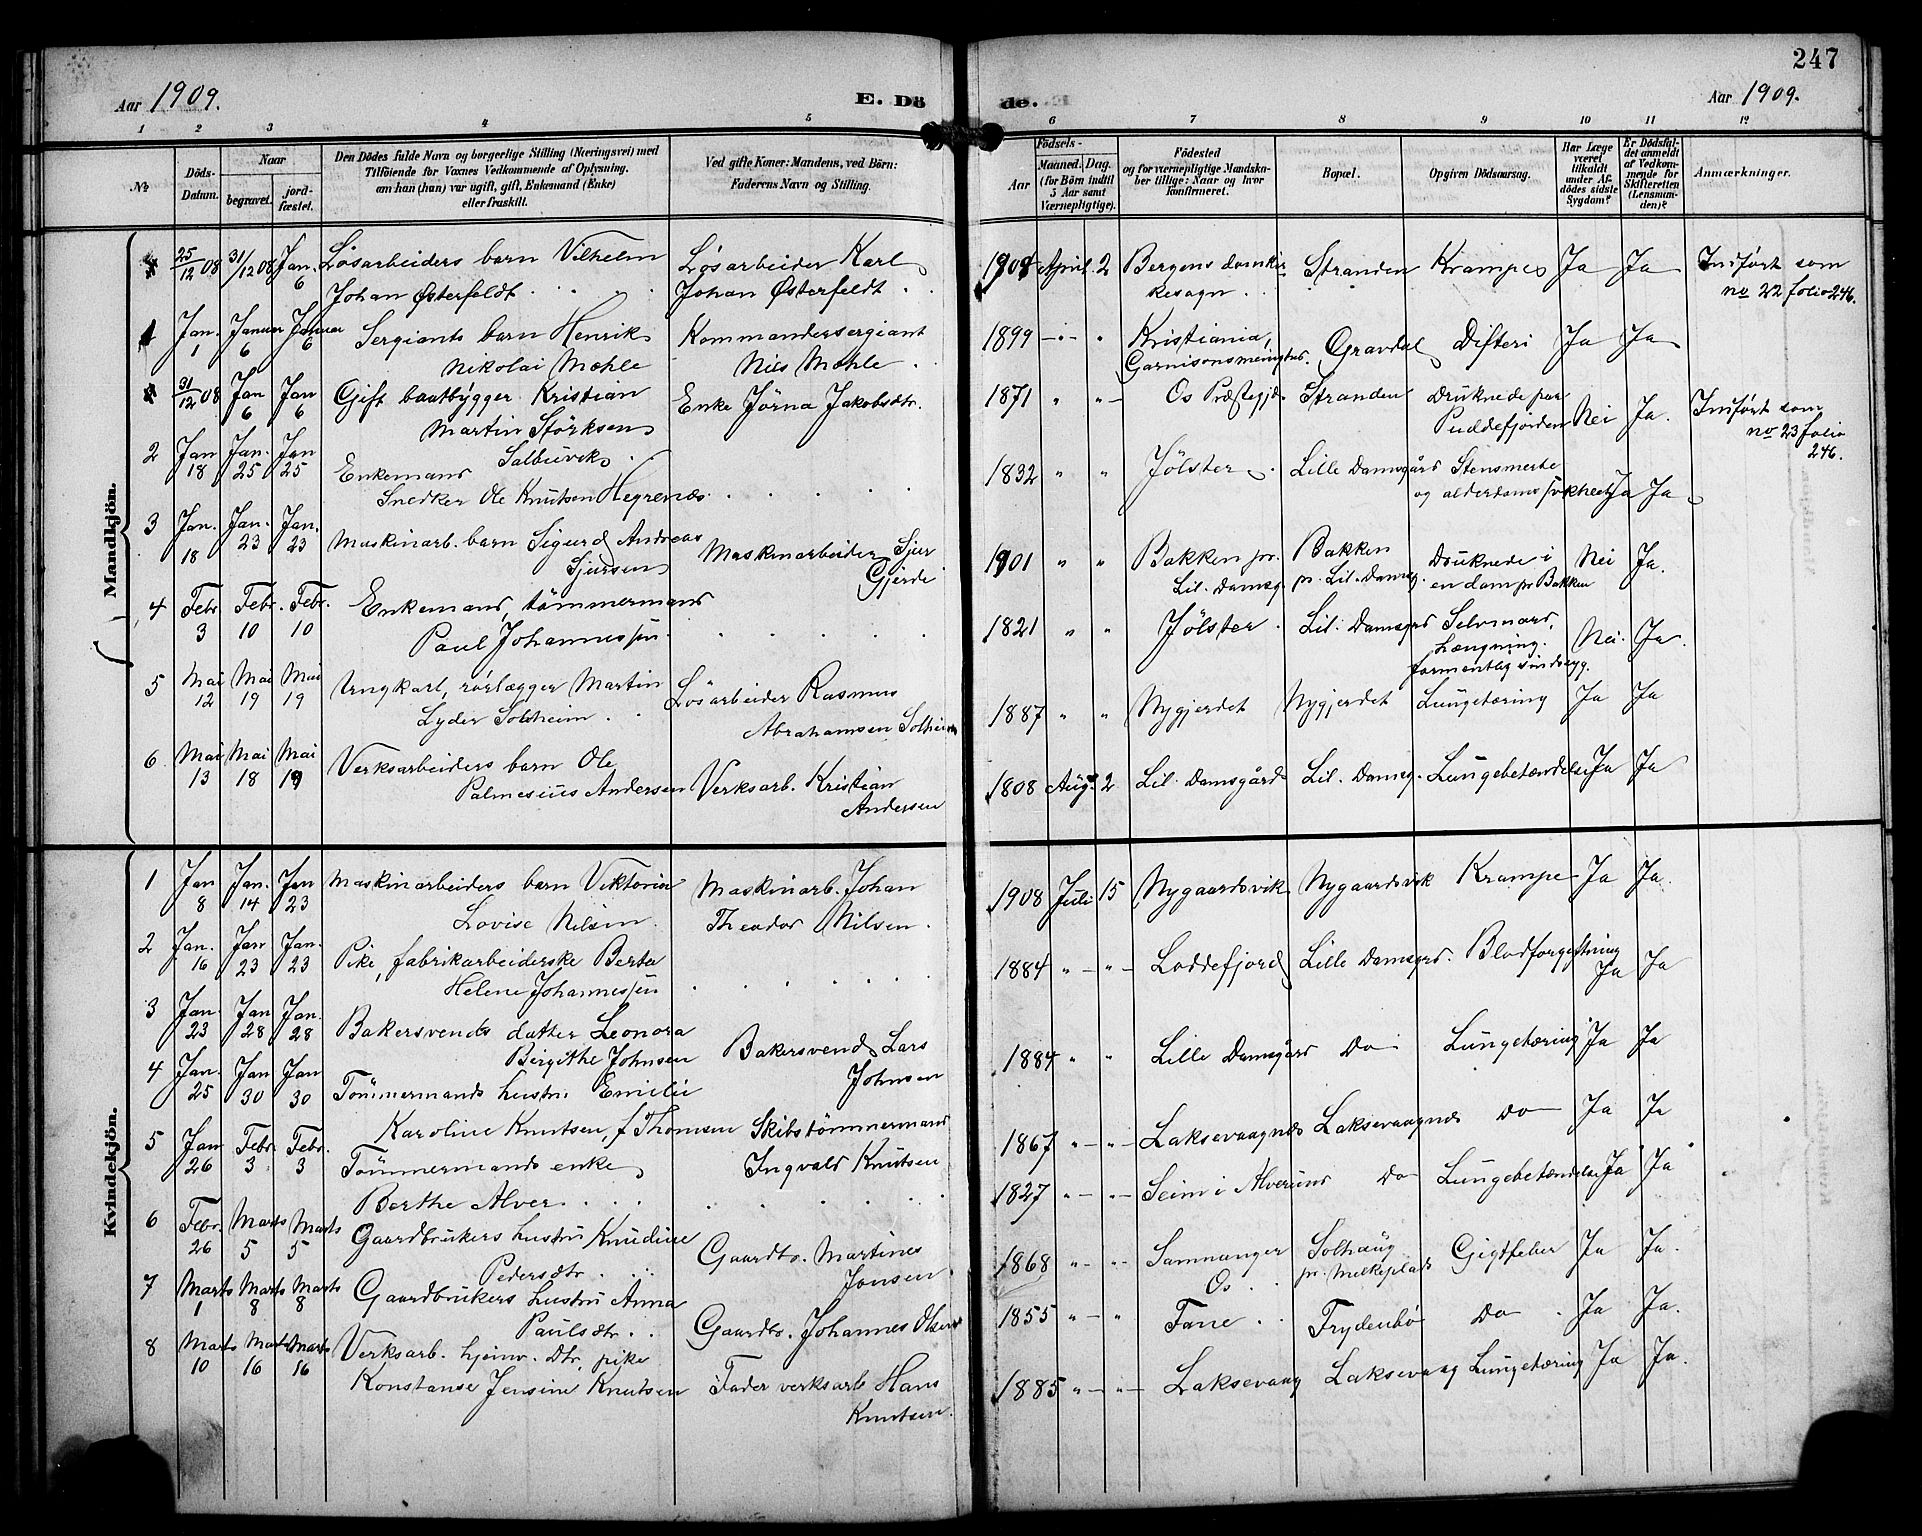 247
Aar 1909. E. Dö de. Aar 1909.
1 2 3 4 5 6 7 8 9 10 11 12
№ Döds-Datum. Naar begravet. jord-fæstet. Den Dödes fulde Navn og borgerlige Stilling (Næringsvei) med Tilföiende for Voxnes Vedkommende af Oplysning, om han (hun) var ugift, gift, Enkemand (Enke) eller fraskilt. Ved gifte Koner: Mandens, ved Börn: Faderens Navn og Stilling. Födsels- Aar Maaned. Dag. (for Börn indtil 5 Aar samt Værnepligtige). Födested og for værnepligtige Mandskaber tillige: Naar og hvor konfirmeret. Bopæl. Opgiven Dödsaarsag. Har Læge været tilkaldt under Afdödes sidste Sygdom? Er Dödsfaldet anmeldt af Vedkommende for Skifteretten (Lensmanden)? Anmærkninger.
Mandkjön.
25/12 08 31/12 08 Jan. 6 Lösarbeiders barn Vilhelm Johan Østerfeldt Lösarbeider Karl Johan Østerfeldt 1908 April 2 Bergens domkirkesogn Stranden Krampe Ja Ja Indført som no 22 folio 246.
1 Jan. 1 Januar 6 Januar 6 Sergiants barn Henrik Nikolai Mæhle Kommandersergiant Nils Mæhle 1899 Kristiania, Garnisonsmenighed. Gravdal Difteri Ja Ja
31/12 08 Jan 6 Jan 6 Gift baatbygger Kristian Martin Störksen Salbuvik Enke Jörna Jakobsdtr. 1871 " " Os Præstegjd. Stranden Druknede paa Puddefjorden Nei Ja. Indført som no 23 folio 246.
2 Jan 18 Jan. 25 Jan 25 Enkemand Snedker Ole Knutsen Hegrenæs 1832 " " Jölster Lille Damsgård Stensmerte og alderdomssvakhet Ja Ja
3 Jan. 18 Jan. 23 Jan. 23 Maskinarb. barn Sigurd Andreas Sjursen Maskinarbeider Sjur Gjerde 1901 " " Bakken pr. Lil. Damsg. Bakken pr. Lil. Damsg. Druknede i en dam pr Bakken Nei Ja.
4 Febr 3 Febr. 10 Febr. 10 Enkemand, tömmermand Paul Johannessen 1821 " " Jölster Lil. Damsgrd Selvmord, Hængning. formentlig sindssyg. Nei. Ja.
5 Mai 12 Mai 19 Mai 19 Ungkarl, rörlægger Martin Lyder Solheim Lösarbeider Rasmus Abrahamsen Solheim 1887 " " Nygjerdet Nygjerdet Lungetæring Ja Ja
6. Mai 13 Mai 18 Mai 19 Verksarbeiders barn Ole Palmesius Andersen Verksarb. Kristian Andersen 1808 Aug. 2 Lil. Damsgård Lil. Damsg. Lungebetændelse Ja Ja
Kvindekjön.
1 Jan 8 Jan. 14 Jan 23 Maskinarbeiders barn Viktoria Lovise Nilsen. Maskinarb. Johan Theodor Nilsen. 1908 Juli 15 Nygaardsvik Nygaardsvik Krampe Ja Ja.
2 Jan. 16 Jan 23 Jan. 23 Pike, fabrikarbeiderske Berta Helene Johannessen 1884 " " Loddefjord Lille Damsgrd. Blodforgiftning Ja Ja
3 Jan. 23 Jan 28 Jan. 28 Bakersvends datter Leonora Bergithe Johnsen Bakersvend Lars Johnsen 1884 " " Lille Damsgård Do Lungetæring Ja Ja
4 Jan. 25 Jan 30 Jan 30 Tömmermands hustru Emilie Karoline Knutsen, f Thomsen Skibstömmermand Ingvald Knutsen 1867 " " Laksevaagnæs Laksevaagnæs Do Ja Ja
5 Jan 26 Febr. 3 Febr. 3 Tömmermands enke Berthe Alver 1827 " " Seim i Alversund Do Lungebetændelse Ja Ja
6 Febr. 26 Marts 5 Marts 5 Gaardbrukers hustru Knudine Pedersdtr. Gaardbr. Martines Jansen 1868 " " Samnanger Os Solhaug pr. Melkeplads Gigtfeber Ja Ja.
7 Marts 1 Marts 8 Marts 8 Gaardbrukers hustru Anna Paulsdtr. Gaardbr. Johannes Olsen 1855 " " Fane Frydenbö Do Ja Ja.
8 Marts 10 Marts 16 Marts 16 Verksarb. hjemv. Dtr, pike Konstanse Jensine Knutsen Fader verksarb Hans Knutsen. 1885 " " Laksevaag Laksevaag Lungetæring Ja Ja.